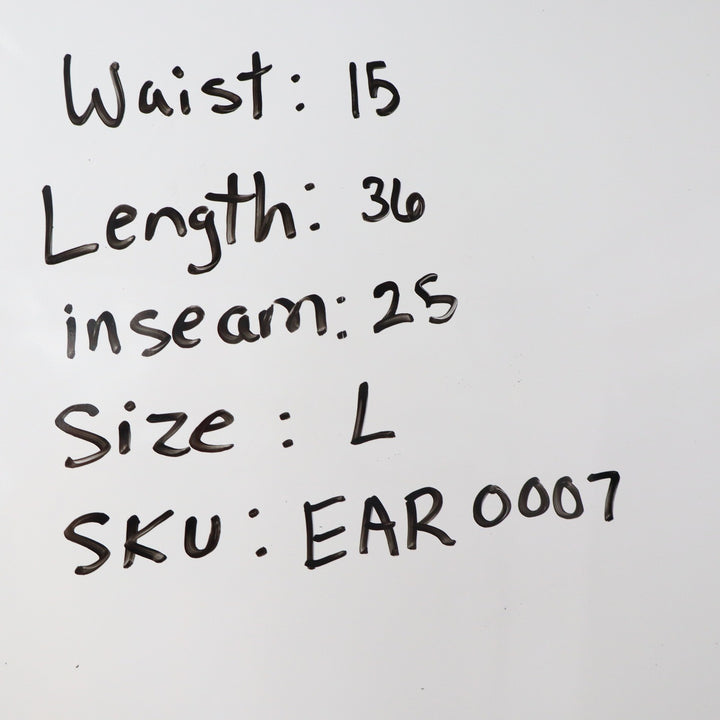 Waist: 15
Length: 36
inseam: 25
Size: L
SKU: EAR 0007